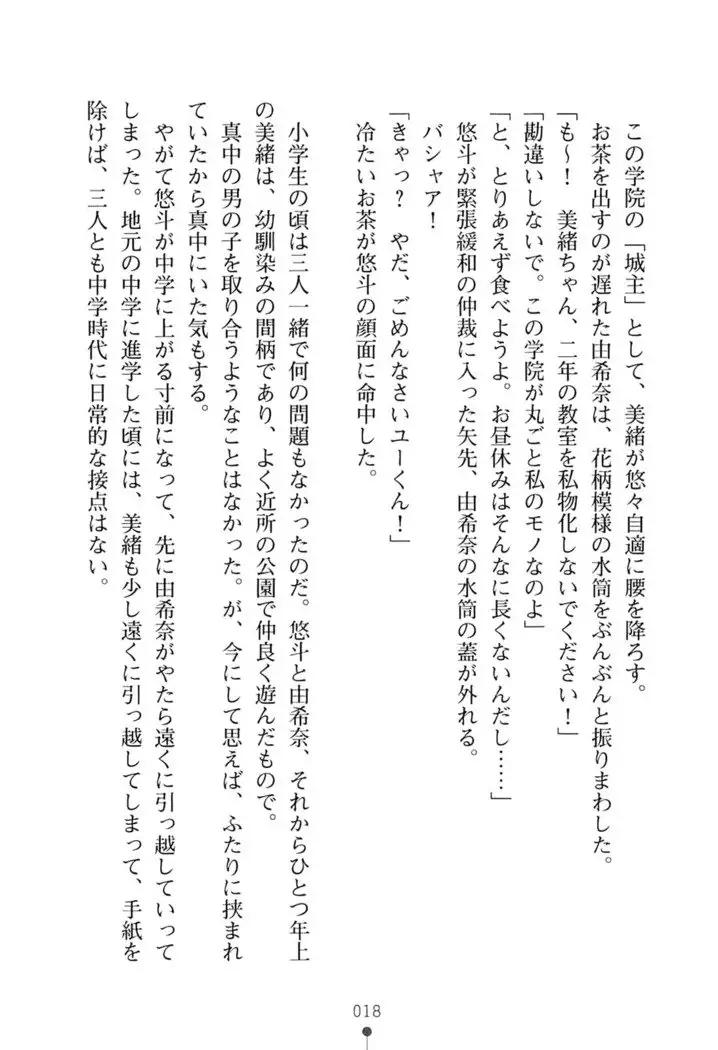 この学院の「城主」として、美緒が悠々自適に腰を降ろす。
お茶を出すのが遅れた由希奈は、花柄模様の水筒をぶんぶんと振りまわした。
「も～！　美緒ちゃん、二年の教室を私物化しないでください！」
「勘違いしないで。この学院が丸ごと私のモノなのよ」
「と、とりあえず食べようよ。お昼休みはそんなに長くないんだし……」
悠斗が緊張緩和の仲裁に入った矢先、由希奈の水筒の蓋が外れる。
バシャア！
「きゃっ？　やだ、ごめんなさいユーくん！」
冷たいお茶が悠斗の顔面に命中した。
小学生の頃は三人一緒で何の問題もなかったのだ。悠斗と由希奈、それからひとつ年上
の美緒は、幼馴染みの間柄であり、よく近所の公園で仲良く遊んだもので。
真中の男の子を取り合うようなことはなかった。が、今にして思えば、ふたりに挟まれ
ていたから真中にいた気もする。
やがて悠斗が中学に上がる寸前になって、先に由希奈がやたら遠くに引っ越していって
しまった。地元の中学に進学した頃には、美緒も少し遠くに引っ越してしまって、手紙を
除けば、三人とも中学時代に日常的な接点はない。
018